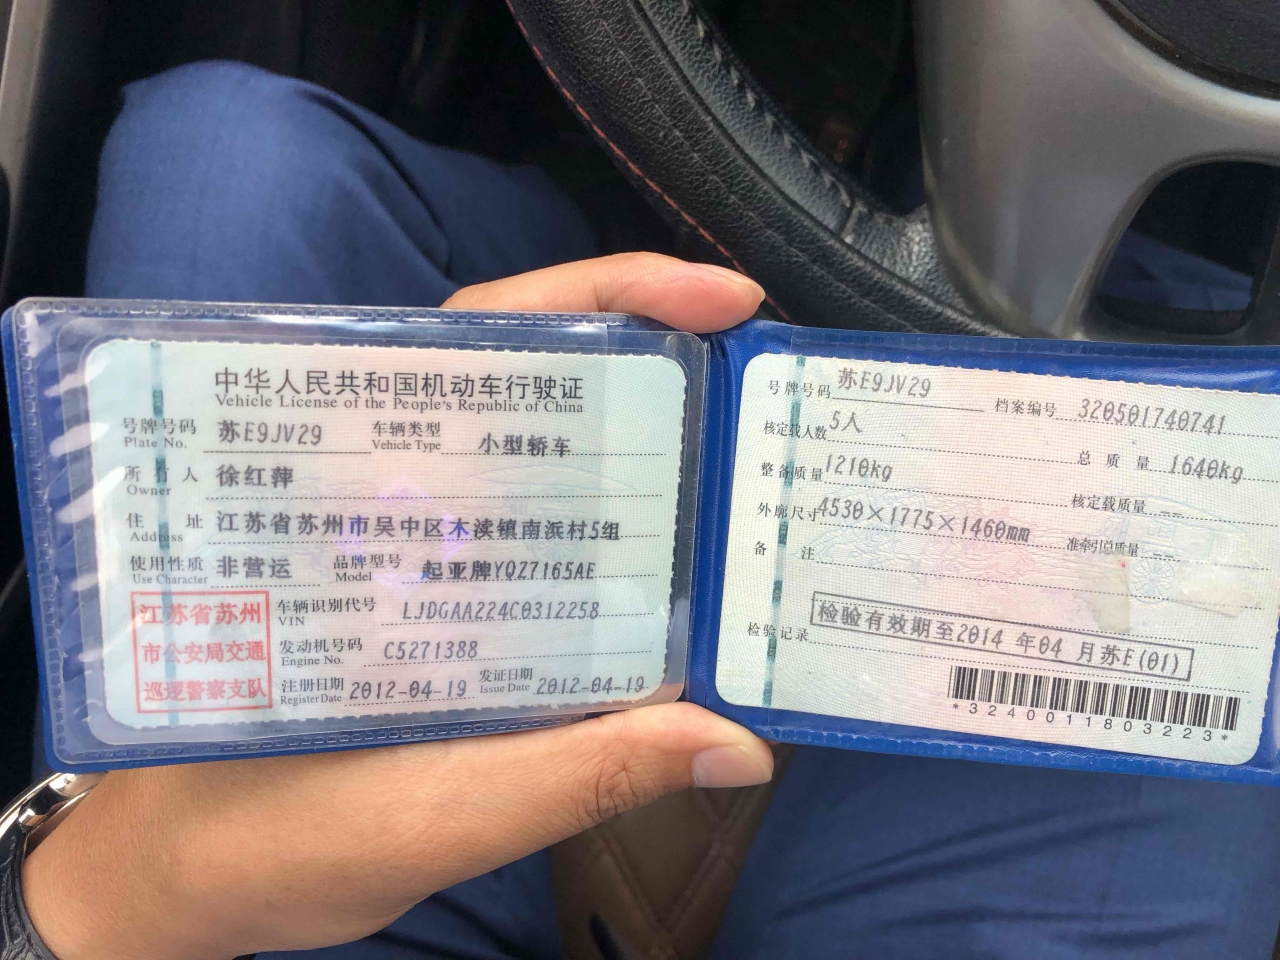 中华人民共和国机动车行驶证
Vehicle License of the People's Republic of China
号牌号码 苏E9JV29 车辆类型 小型轿车
Plate No. Vehicle Type
所有人 徐红萍
Owner
住址 江苏省苏州市吴中区木渎镇南浜村5组
Address
使用性质 非营运 品牌型号 起亚牌YQZ7165AE
Use Character Model
江苏省苏州
市公安局交通
巡逻警察支队
车辆识别代号 LJDGAA224C0312258
VIN
发动机号码 C5271388
Engine No.
注册日期 2012-04-19 发证日期 2012-04-19
Register Date Issue Date
号牌号码 苏E9JV29 档案编号 320501740741
核定载人数 5人 总质量 1640kg
整备质量 1210kg 核定载质量 --
外廓尺寸 4530×1775×1460mm 准牵引总质量 --
备注
检验记录 检验有效期至2014年04月苏E(01)
*3240011803223*